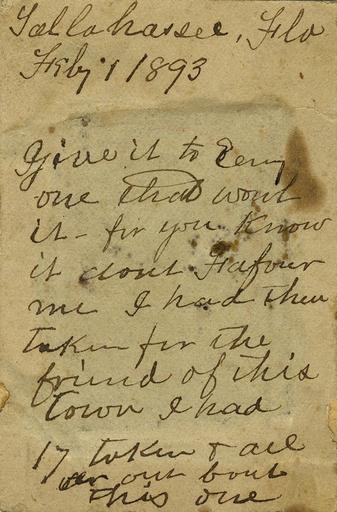 Tallahassee, Flo
Feby 1 1893
Give it to Eeny
one that wont
it - for you Know
it dont Fafour
me I had them
taken for the
friend of this
Town I had
17 taken & all
ar out bout
this one